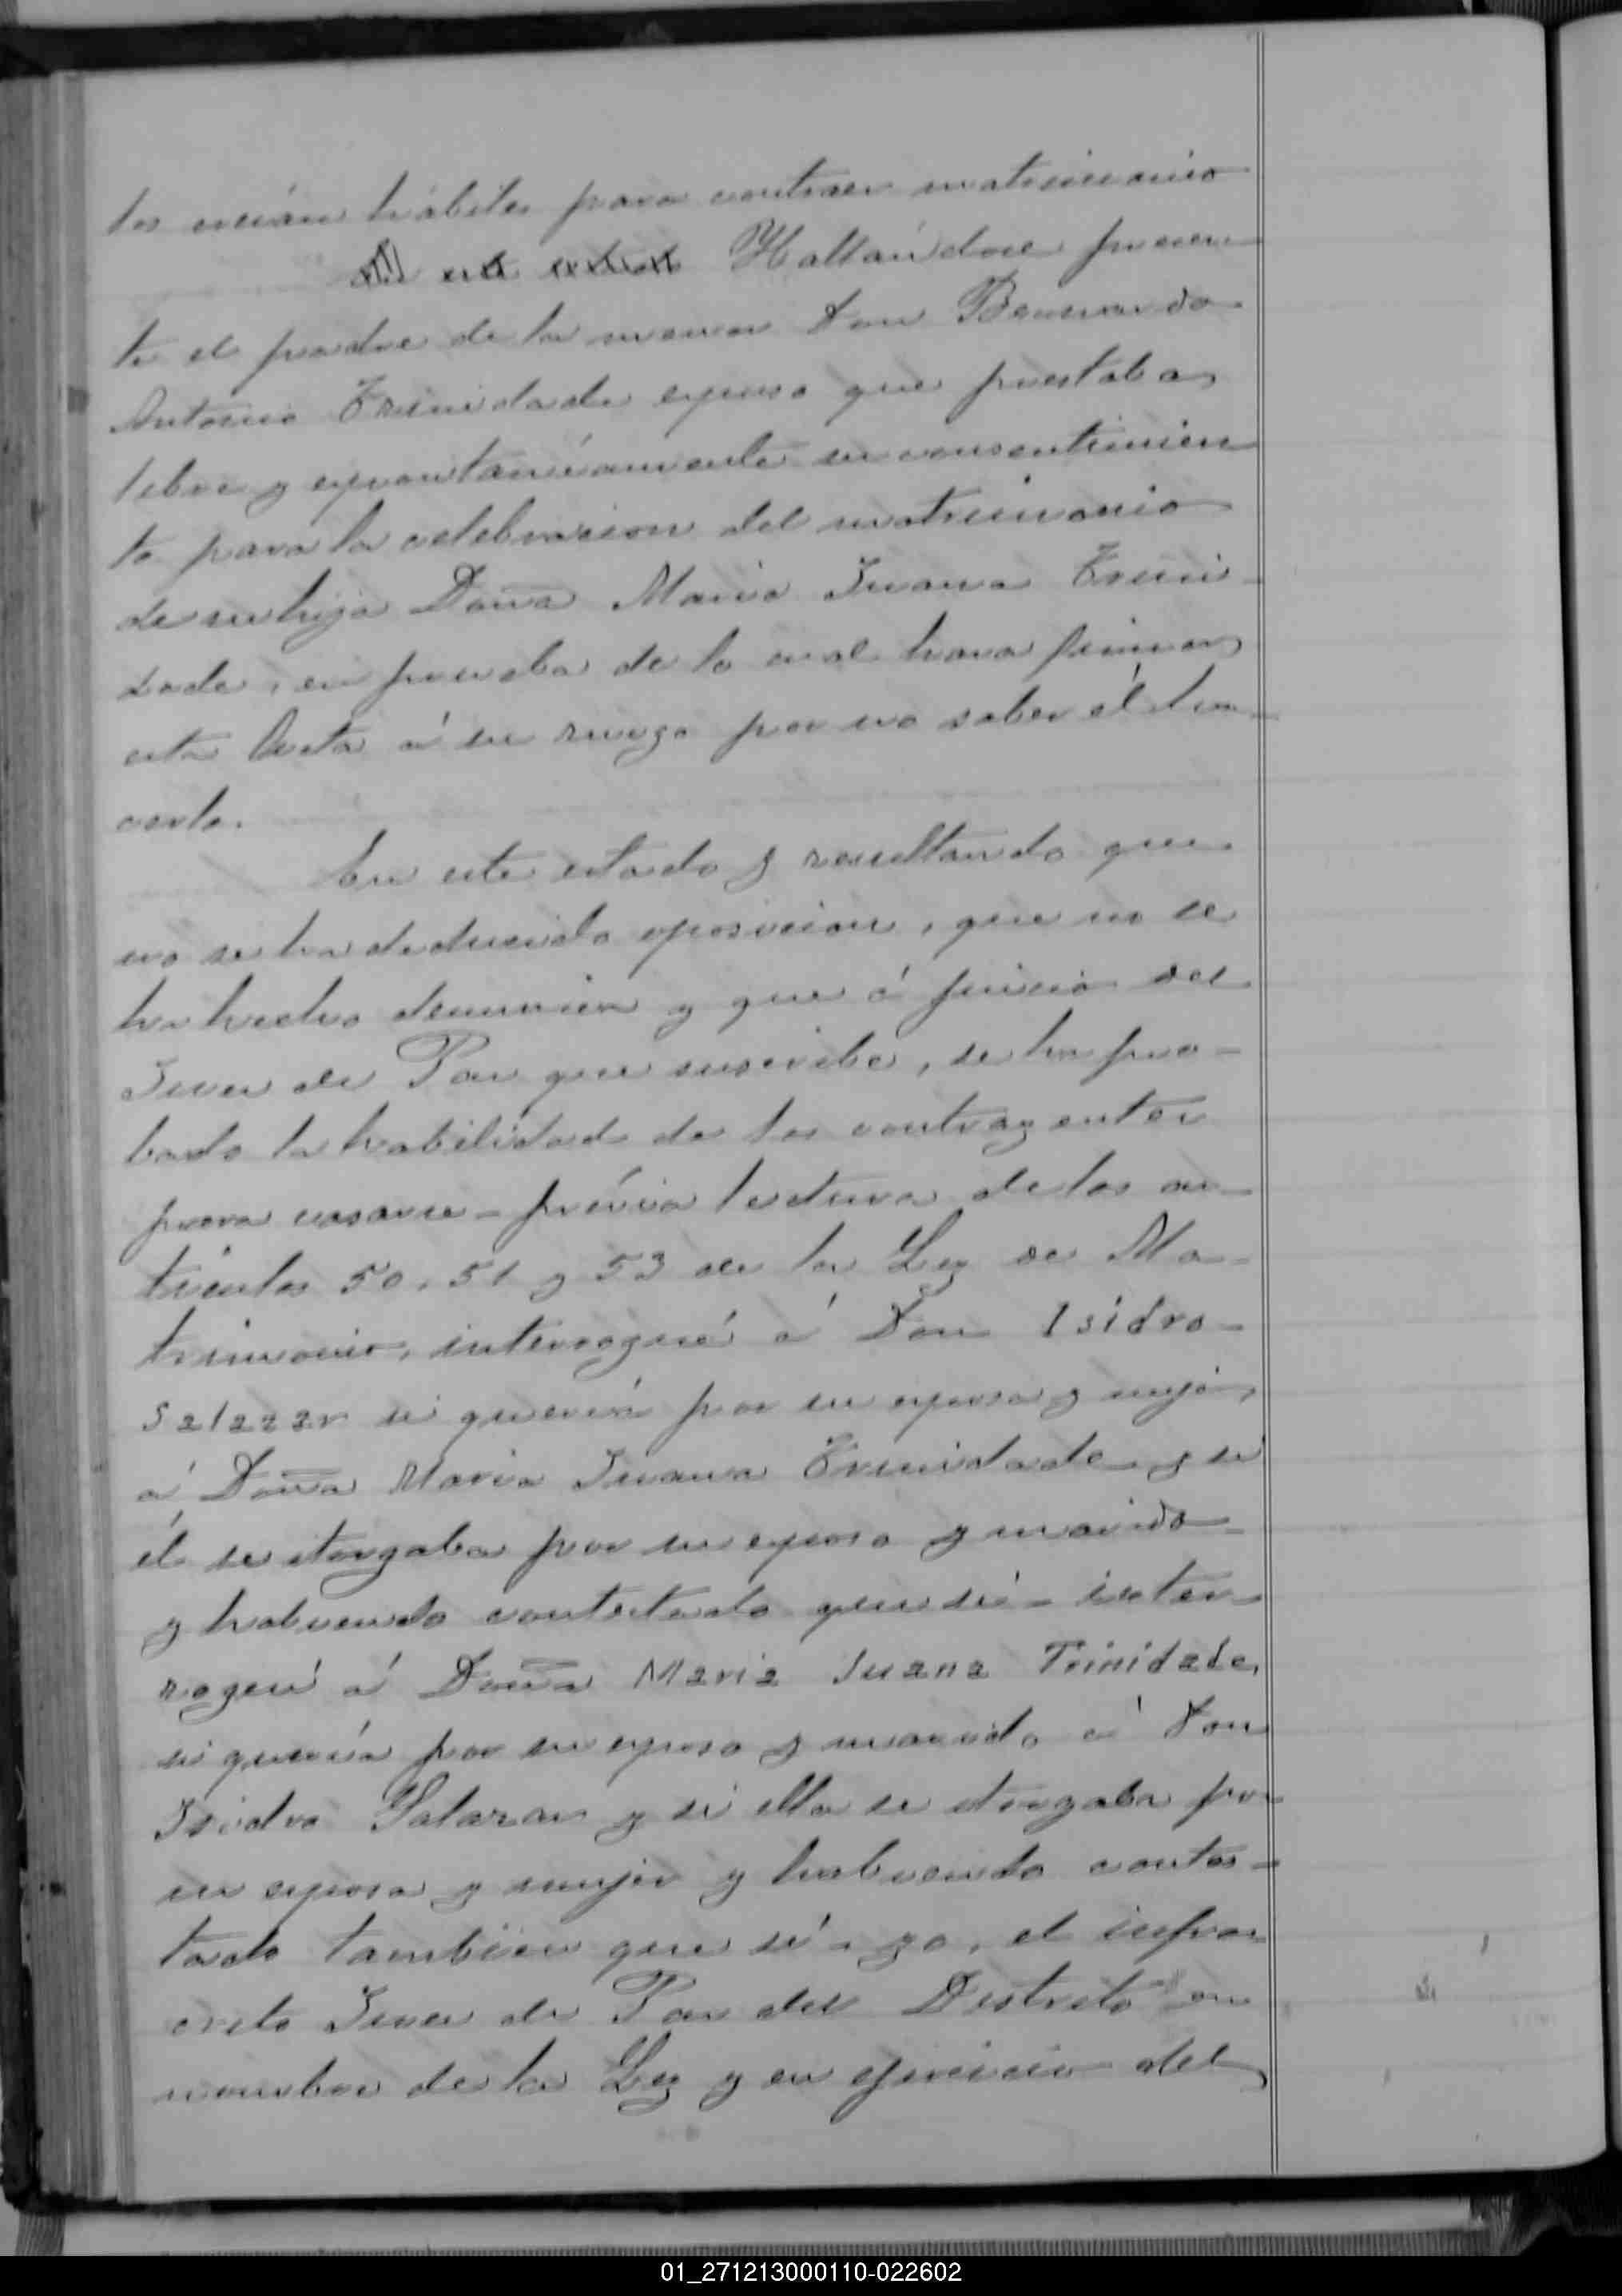 los creian hábiles para contraer matrimonio
En este estado Hallándose presen
te el padre de la menor Don Bernardo
Antonio Trinidade espuso que prestaba
libre y espontanéamente su consentimien
to para la celebracion del matrimonio
de su hija Doña Maria Juana Trini-
dade, en prueba de lo cual hara firmar
esta Acta á su ruego por no saber él ha-
cerlo.
En este estado y resultando que
no se ha deducido oposicion, que no se
ha hecho denuncia y que á juicio del
Juez de Paz que suscribe, se ha pro-
bado la habilidad de los contrayentes
para casarse - prévia lectura de los ar-
tículos 50, 51 y 53 de la Ley de Ma-
trimonio, interrogué á Don Isidro
Salazar si queria por su esposa y mujer,
á Doña Maria Juana Trinidade y si
él se otorgaba por su esposo y marido
y habiendo contestado que sí - inter-
rogué á Doña Maria Juana Trinidade,
si quería por su esposo y marido á Don
Isidro Salazar y si ella se otorgaba por
su esposa y mujer y habiendo contes-
tado tambien que sí - yo, el infra-
crito Juez de Paz del Distrito en
nombre de la Ley y en ejercicio del
01_271213000110-022602